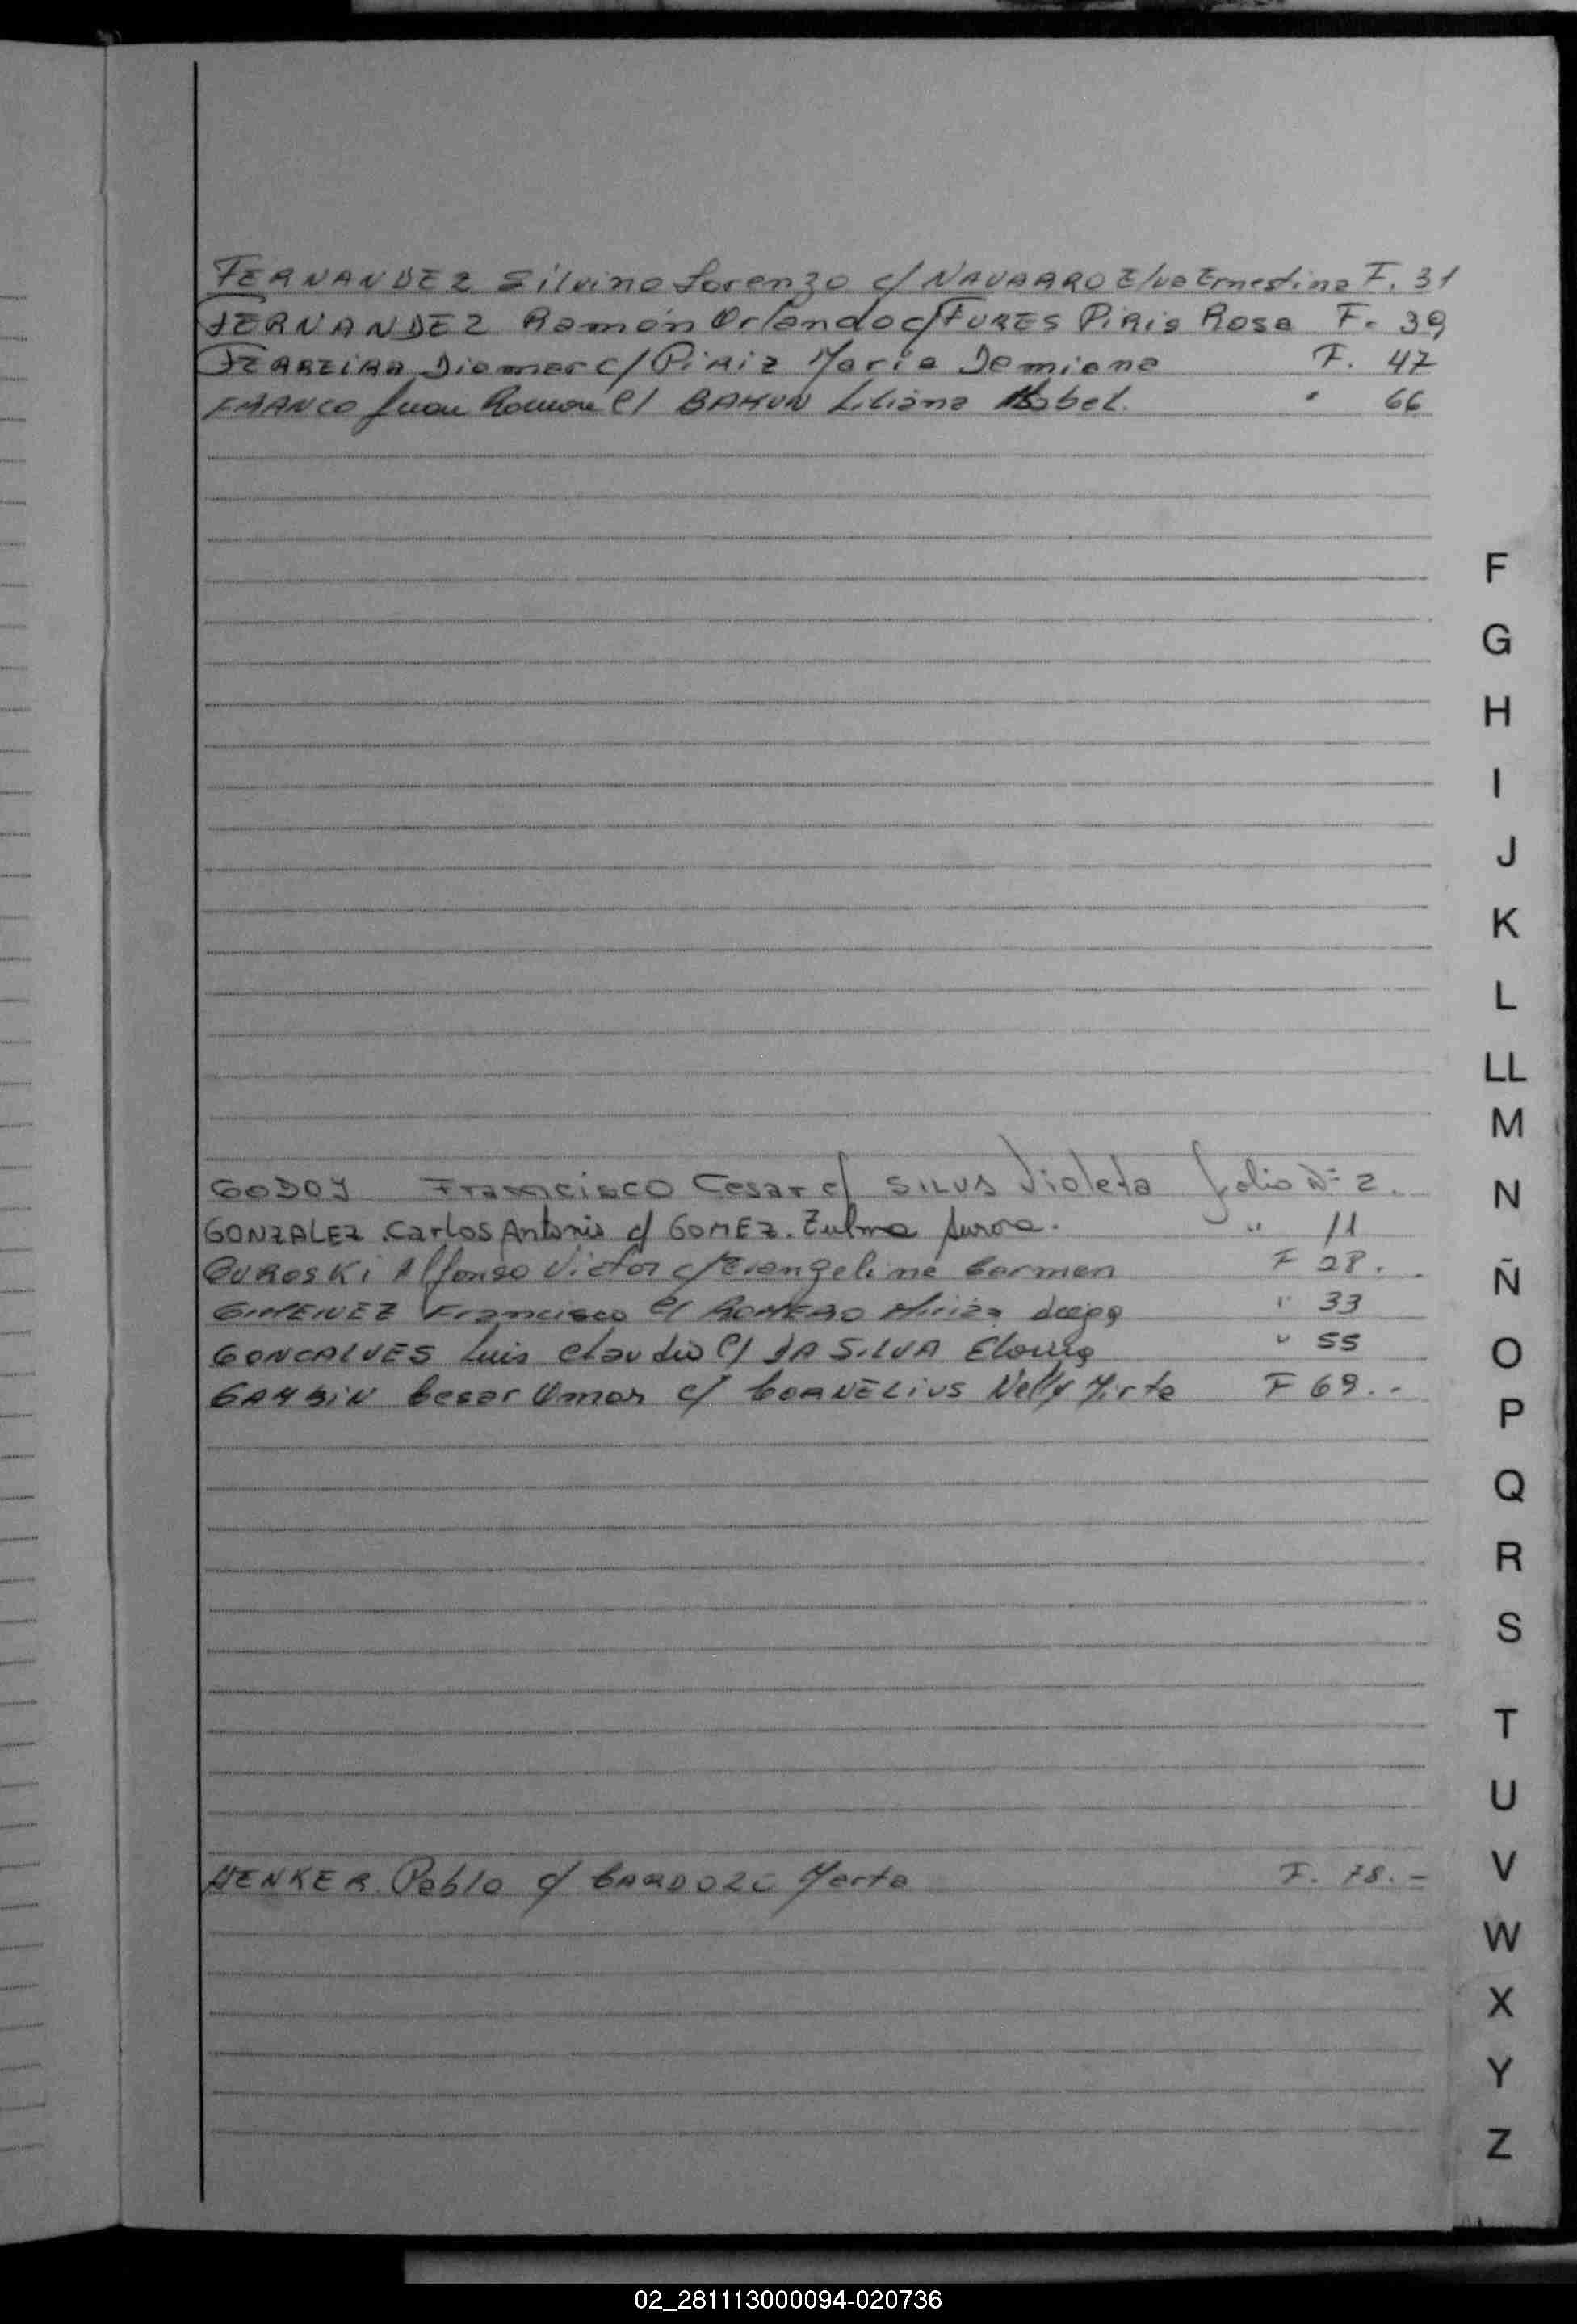 FERNANDEZ Silvino Lorenzo c/ NAVARRO Elva Ernestina F. 31
FERNANDEZ Ramón Orlando c/ FURES Piris Rosa F. 39
FERREIRA Diomar c/ PiRiz Maria Demiana F. 47
FRANCO Juan Ramon c/ BARON Liliana Mabel. " 66
GODOY Francisco Cesar c/ SILVA Violeta folio Nº 2.
GONZALEZ Carlos Antonio c/ GOMEZ. Zulma Aurora. " 11
GUROSKi Alfonso Victor c/ Evangeline Carmen F 28.
GIMENEZ Francisco c/ ROMERO " 33
GONCALVES Luis Claudio c/ DA SILVA " 55
Cesar Omar c/ CORNELIUS Nelly Mirta F 69.-
HENKER Pablo c/ CARDOZO Marta F. 78.-
F
G
H
I
J
K
L
LL
M
N
Ñ
O
P
Q
R
S
T
U
V
W
X
Y
Z
02_281113000094-020736